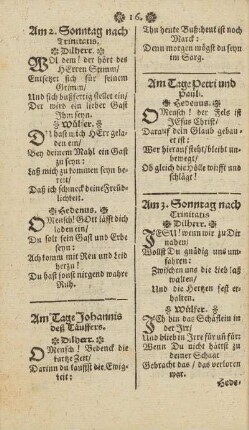 16.
Am 2. Sonntag nach
Trinitatis.
Dilherr.
Wol dem! der hört des
HErren Stimm/
Entsetzet sich für seinem
Grimm/
Und sich bußfertig stellet ein/
Der wird ein lieber Gast
Ihm seyn.
Wülfer.
Du hast mich HErr gela-
den ein/
Bey deinem Mahl ein Gast
zu seyn:
Laß mich zu kommen seyn be-
reit/
Daß ich schmeck deine Freud-
lichkeit.
Hedenus.
O Mensch! GOtt läßt dich
laden ein/
Du solt sein Gast und Erbe
seyn:
Ach komm mit Reu und Leid
herzu!
Du hast sonst nirgend wahre
Ruh.
Am Tage Johannis
deß Täuffers.
Dilherr.
O Mensch! Bedenck die
kurtze Zeit/
Darinn du lauffst die Ewig-
keit:
Thu heute Buß/heut ist noch
Marck:
Denn morgen mögst du seyn
im Sarg.
Am Tage Petri und
Pauli.
Hedenus.
O Mensch! der Fels ist
JEsus Christ/
Darauf dein Glaub gebau-
et ist:
Wer hierauf steht/bleibt un-
bewegt/
Ob gleich die Hölle wüfft und
schlägt!
Am 3. Sonntag nach
Trinitatis
Dilherr.
JESU! wenn wir zu Dir
nahen/
Wollst Du gnädig uns um-
fahen:
Zwischen uns die Lieb laß
walten/
Und die Hertzen fest er-
halten.
Wülfer.
Ich bin das Schäflein in
der Irr/
Und blieb in Irre für und für:
Wenn Du nicht hättst zu
deiner Schaar
Gebracht das/ das verloren
war.
Hede-